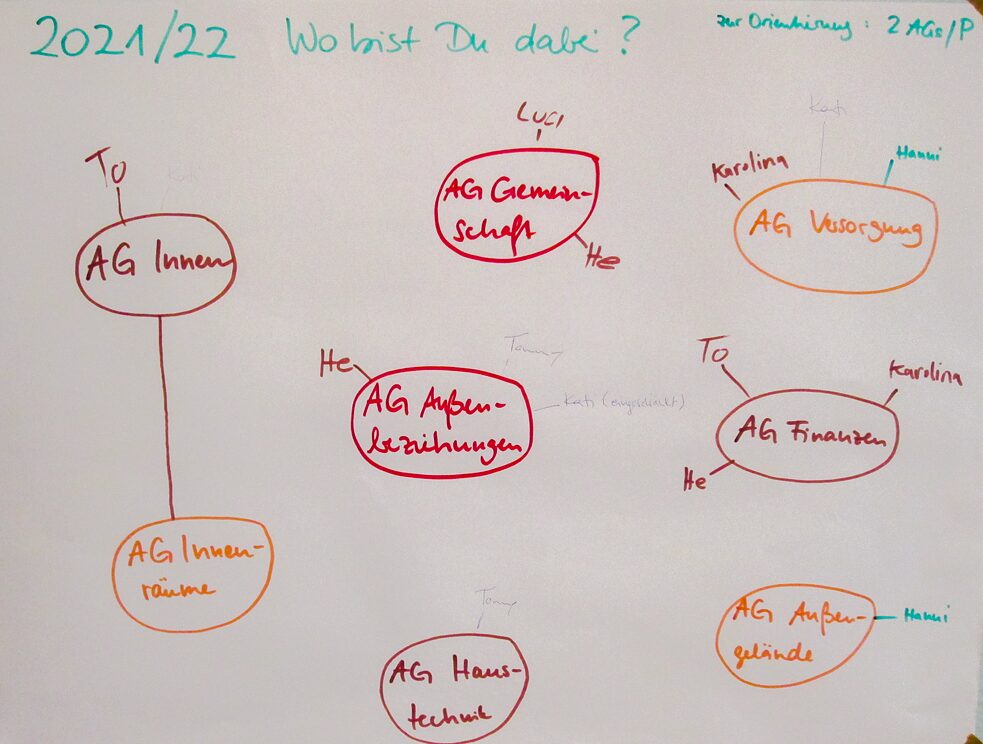 2021/22 Wo bist Du dabei?
zur Orientierung: 2 AGs/P
To
Kati
AG Innen
AG Innen-
räume
Luci
AG Gemein-
schaft
He
Kati
Karolina
Hanni
AG Versorgung
He
Tommy
AG Außen-
beziehungen
Kati (eingeschränkt)
To
Karolina
AG Finanzen
He
Tommy
AG Haus-
technik
AG Außen-
gelände
Hanni